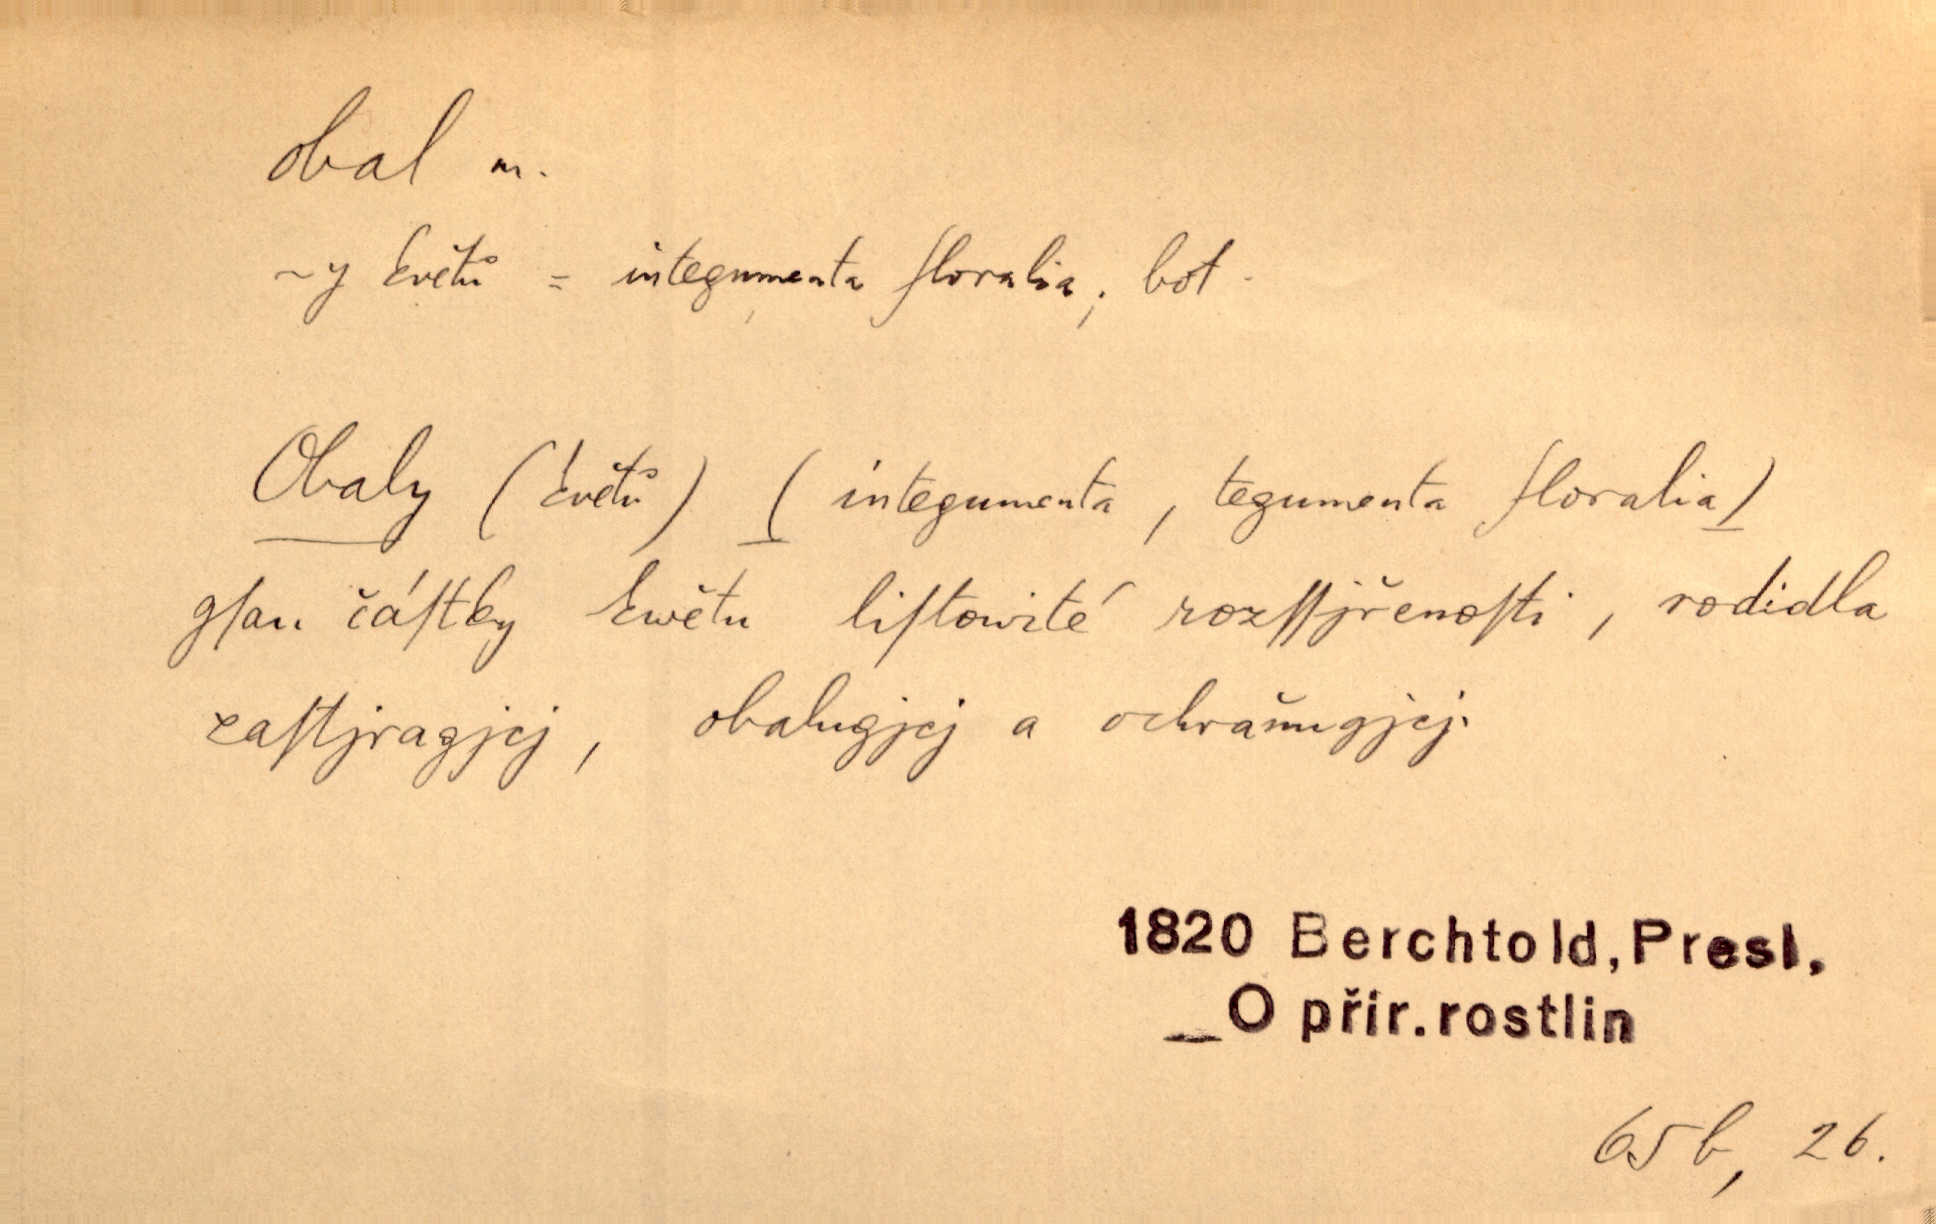 obal m.
~y květů = integumenta floralia; bot.
Obaly (květů) (integumenta, tegumenta floralia)
gſau čáſtky kwětu liſtowité rozſſjřenoſti, rodidla
zaſtjragjcj, obalugjcj a ochraňugjcj.
1820 Berchtold, Presl,
_O přir. rostlin
65b, 26.